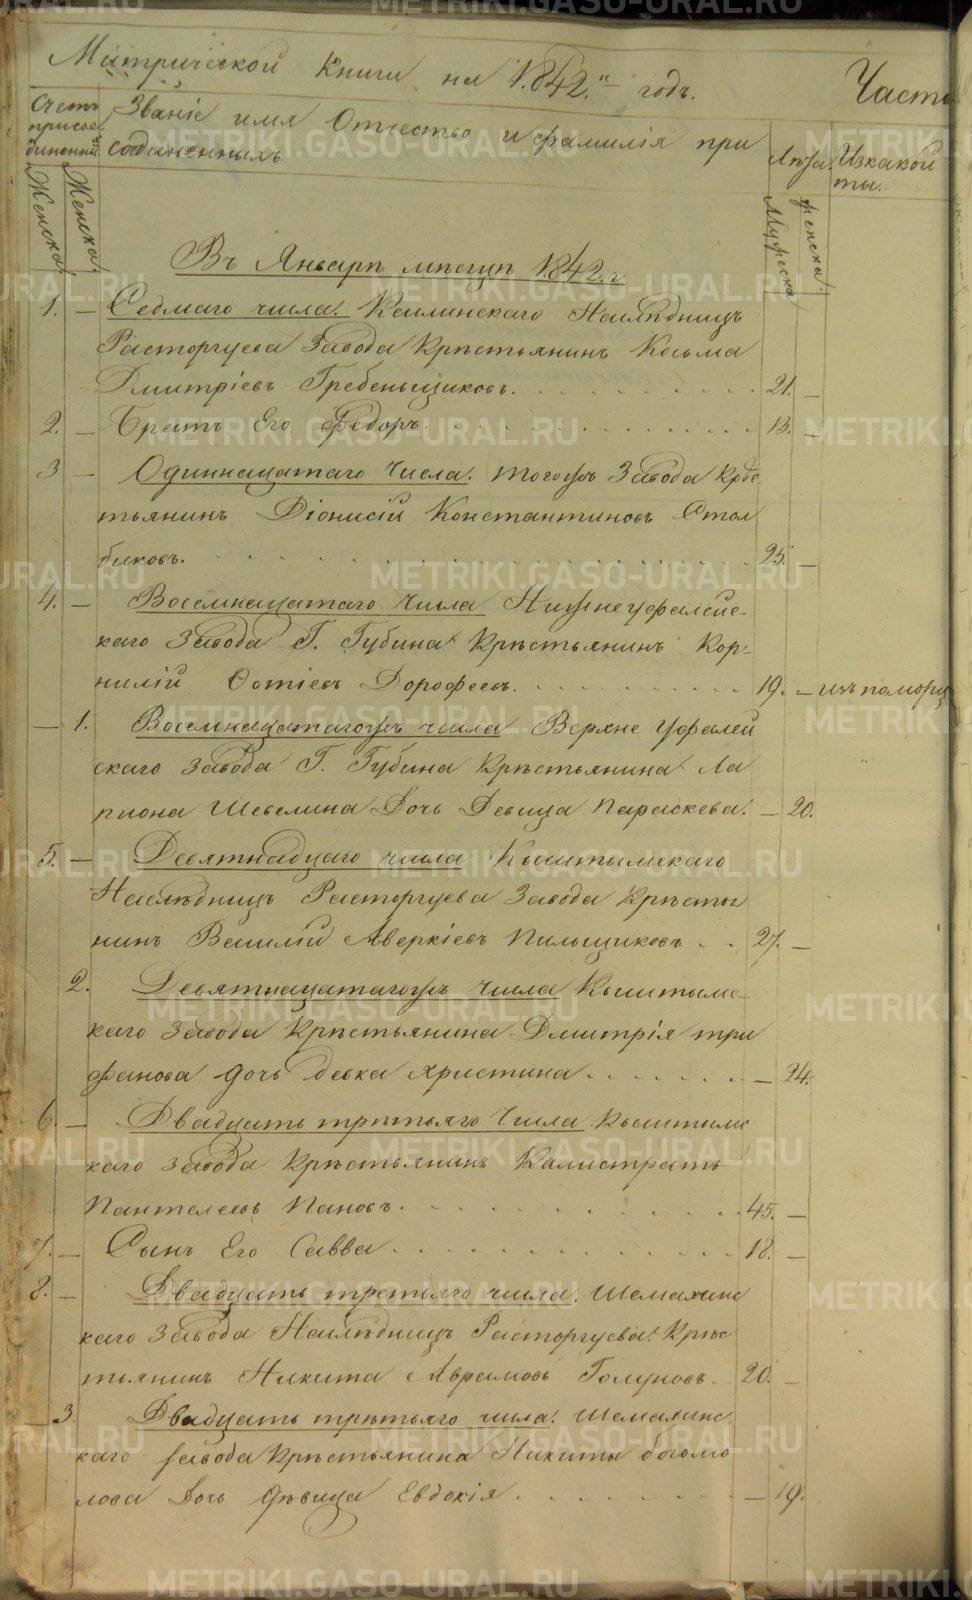 Метрической Книги на 1842.й годъ. Часть
Счетъ присоединенныхъ Званіе имя Отчество и фамилія присоединенныхъ Лѣта. Изкакой
Женска Женска. Мужеска женска
Въ Январѣ мѣсяцѣ 1842. г.
1. — Седмаго числа. Каслинскаго Наслѣдницъ
Расторгуева Завода Крѣстьянинъ Косьма
Дмитріевъ Гребеньщиковъ. 21. —
2. — Братъ Его Федоръ. 13. —
3 — Одиннацатаго Числа. тогожъ Завода Крѣс
тьянинъ Діонисій Константиновъ Стол
биковъ. 25. —
4. — Восемнацатаго Числа Нижнеуфалейс-
каго Завода Г. Губина Крѣстьянинъ Кор-
нилій Фотіевъ Дорофеевъ. 19. — изъ помор
— 1. Восемнацатагожъ числа Верхне Уфалей
скаго Завода Г. Губина Крѣстьянина Ла
риона Шевелина Дочь Девица Параскева. — 20.
5. — Девятнадцаго числа Кыштымскаго
Наслѣдницъ Расторгуева Завода Крѣстья
нинъ Василій Аверкіевъ Пильщиковъ 27. —
2. Девятнацатагожъ числа Кыштымс-
каго Завода Крѣстьянина Дмитрія три
фанова дочь девка Христина — 24.
6. — Двадцать трѣтьяго Числа Кыштымс
каго завода Крѣстьянинъ Калистратъ
Пантелеевъ Пановъ. 45. —
7. — Сынъ Его Савва 18. —
8. — Двадцать третьяго числа. Шемахинс
каго Завода Наслѣдницъ Расторгуева. Крѣс
тьянинъ Никита Аврамовъ Голуновъ. 20. —
— 3. Двадцать трѣтьяго числа. Шемахинс
каго завода Крѣстьянина Никиты богомо
лова Дочь дѣвица Евдокія — 19.
METRIKI.GASO-URAL.RU